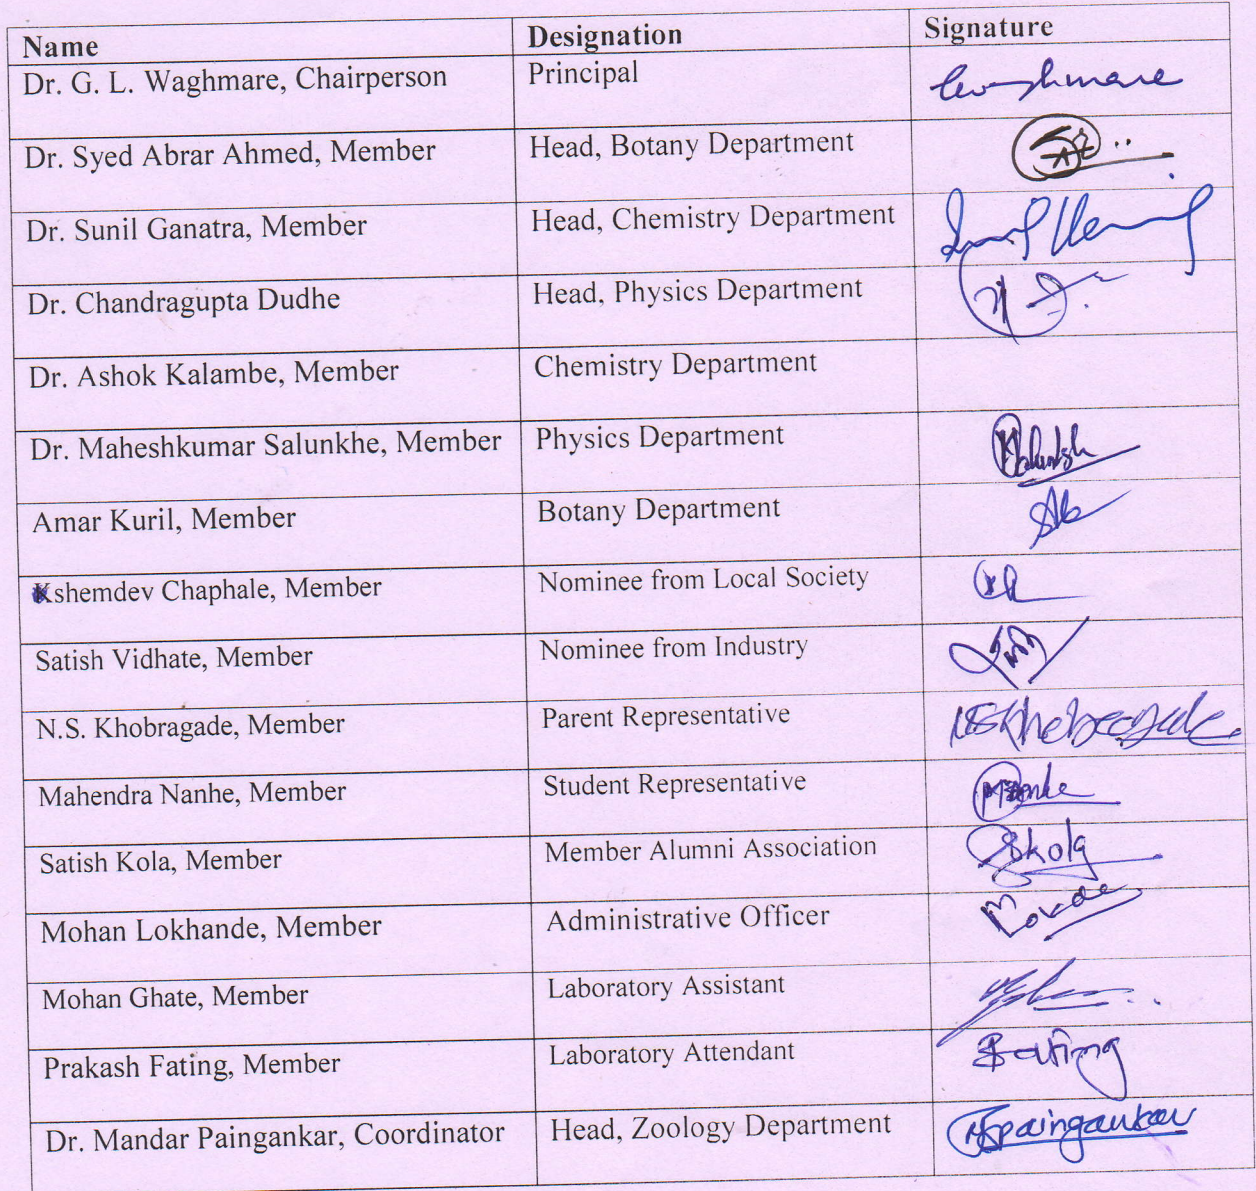 Name Designation Signature
Dr. G. L. Waghmare, Chairperson Principal
Dr. Syed Abrar Ahmed, Member Head, Botany Department
Dr. Sunil Ganatra, Member Head, Chemistry Department
Dr. Chandragupta Dudhe Head, Physics Department
Dr. Ashok Kalambe, Member Chemistry Department
Dr. Maheshkumar Salunkhe, Member Physics Department
Amar Kuril, Member Botany Department
Kshemdev Chaphale, Member Nominee from Local Society
Satish Vidhate, Member Nominee from Industry
N.S. Khobragade, Member Parent Representative NSKhobragade
Mahendra Nanhe, Member Student Representative
Satish Kola, Member Member Alumni Association Skola
Mohan Lokhande, Member Administrative Officer
Mohan Ghate, Member Laboratory Assistant
Prakash Fating, Member Laboratory Attendant Fating
Dr. Mandar Paingankar, Coordinator Head, Zoology Department Paingankar